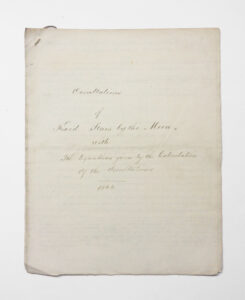 Occultations
of
Fixed Stars by the Moon,
with
The Equations given by the Calculation
of the Occultations